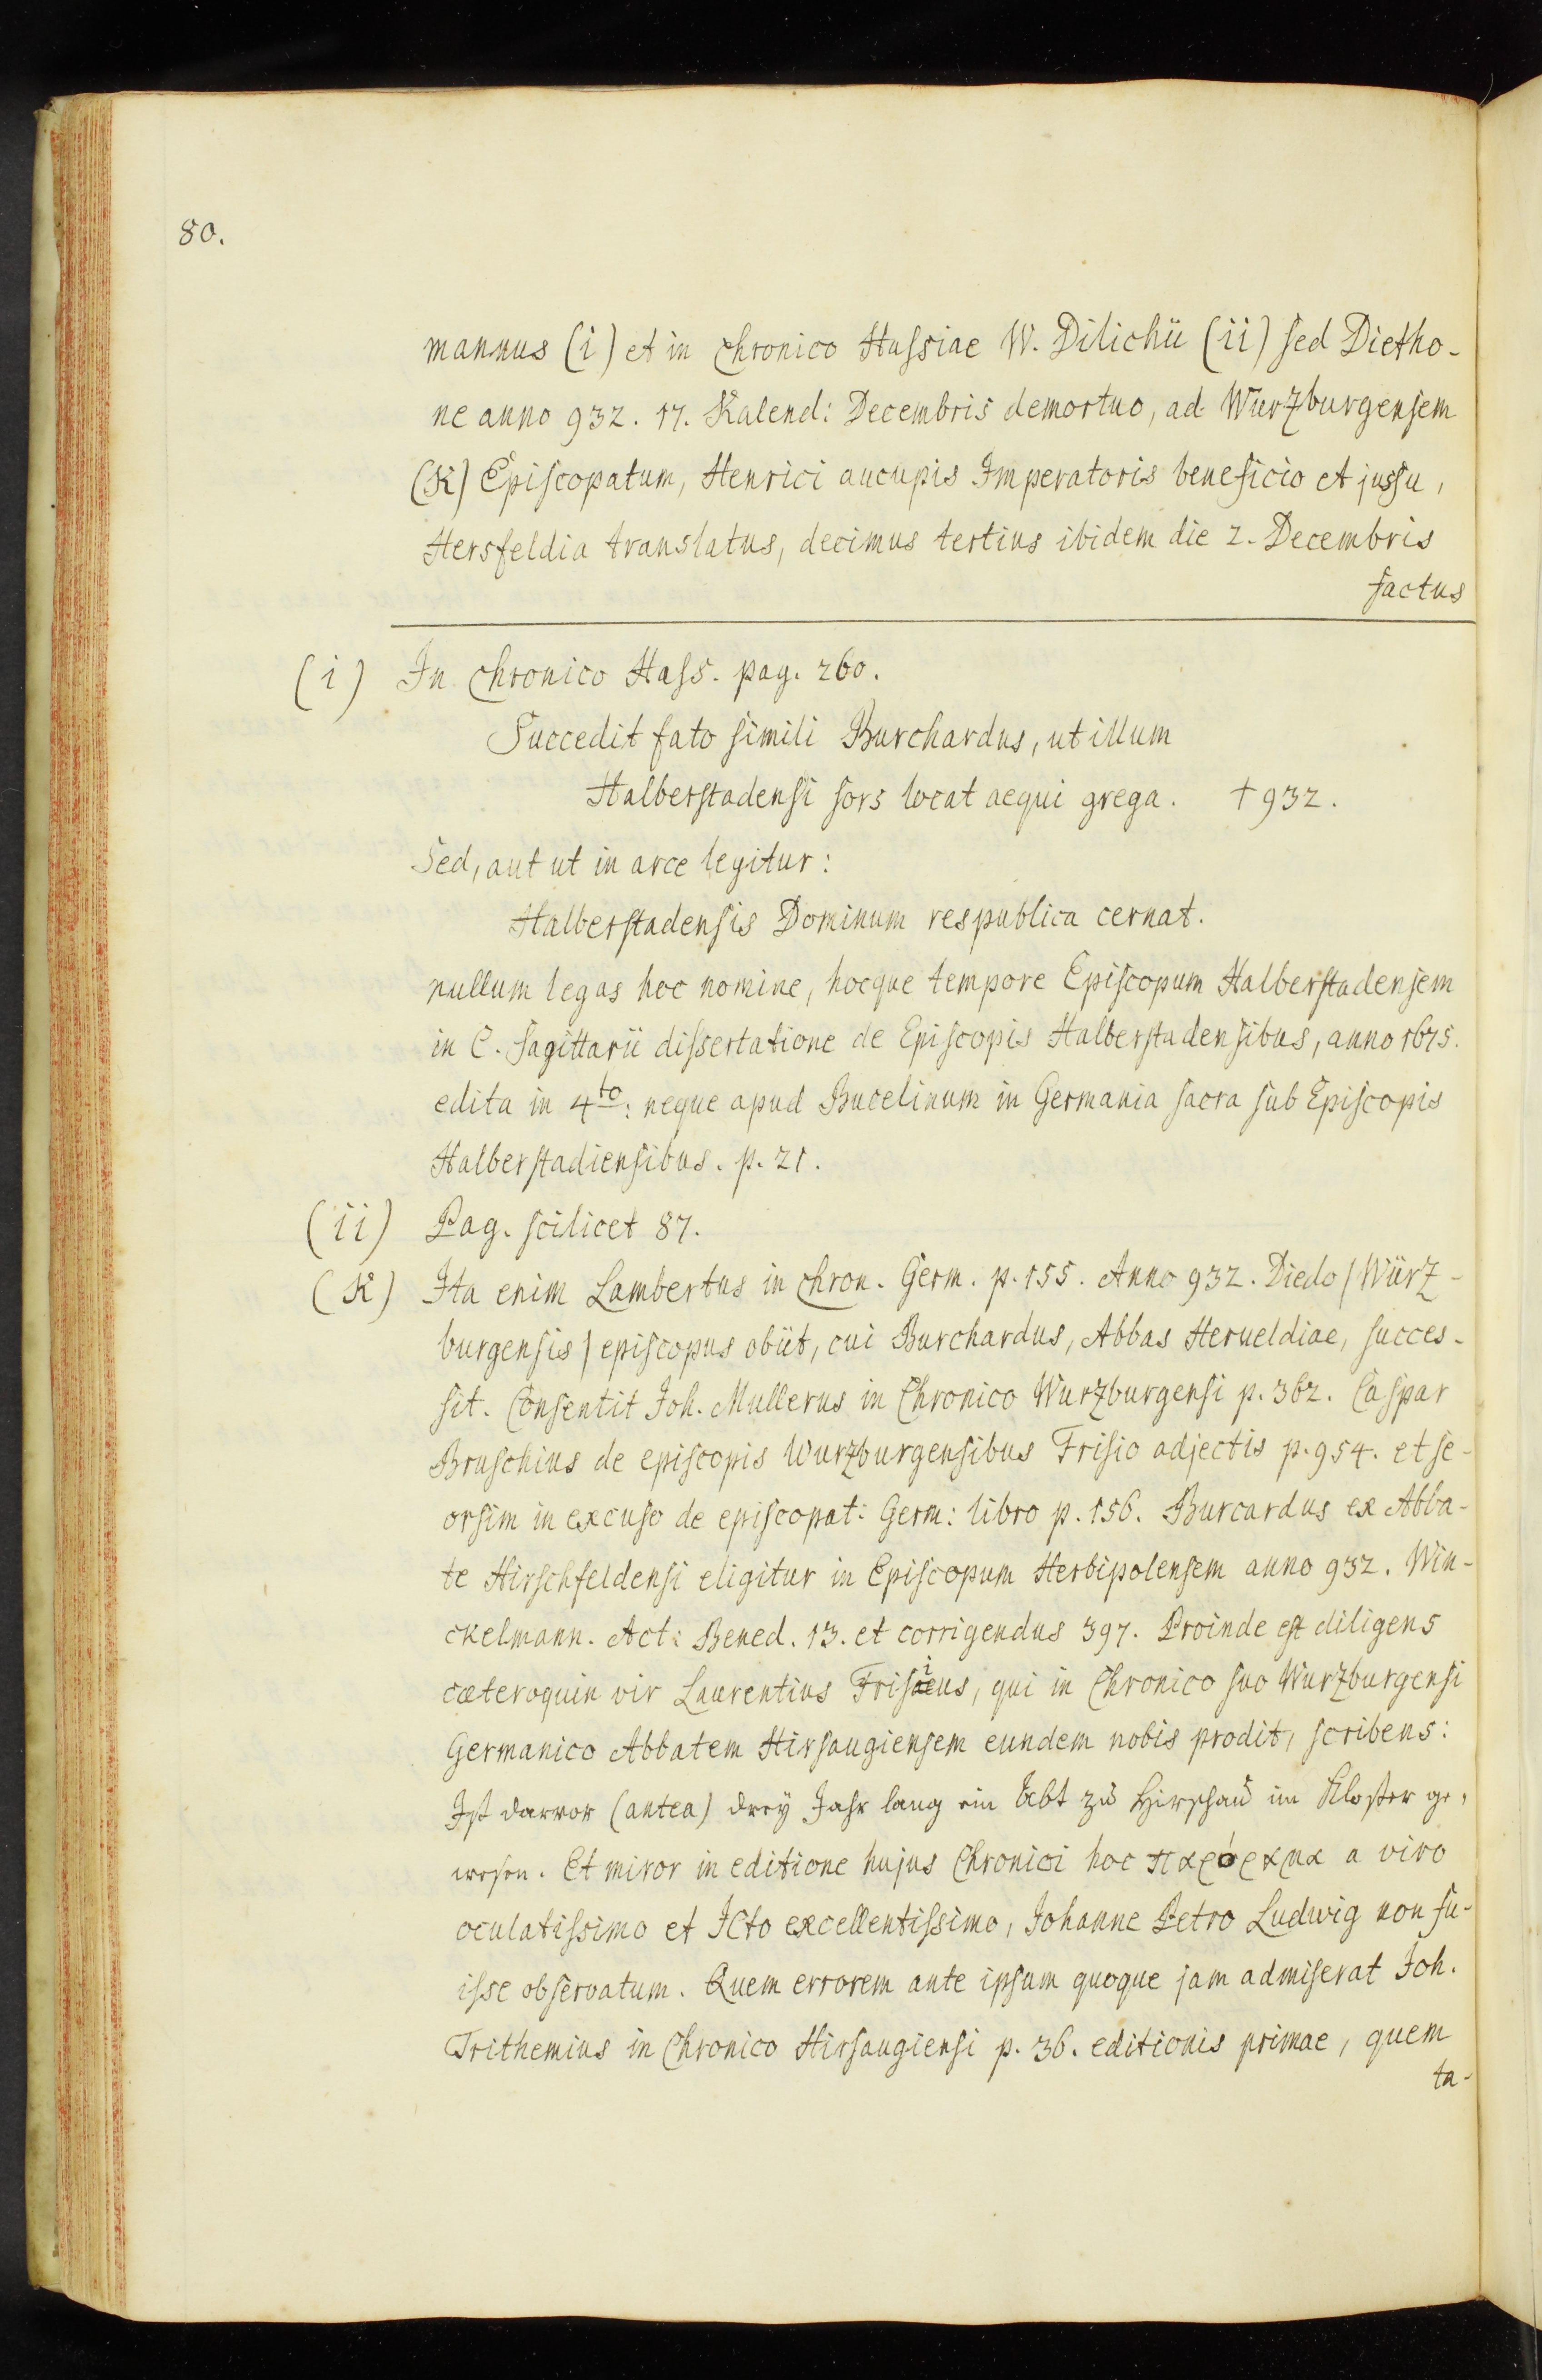 80.
mannus (i) et in chronico Hassiae W. Dilichii (ii) sed Dietho-
ne anno 932. 17. Kalend: Decembris demortuo, ad Würzburgensem
(K) Episcopatum, Henrici aucupis Imperatoris beneficio et jussu,
Hersfeldia translatus, decimus tertius ibidem die 2. Decembris
factus
(i) In chronico Hass. pag. 260.
Succedit fato simili Burchardus, ut illum
Halberstadensi sors locat aequi grega. † 932.
Sed, aut ut in arce legitur:
Halberstadensis Dominum respublica cernat.
nullum legas hoc nomine, hocque tempore Episcopum Halberstadensem
in C. Sagittarii dissertatione de Episcopis Halberstadensibus, anno 1675.
edita in 4to: neque apud Bucelinum in Germania sacra sub Episcopis
Halberstadiensibus. p. 21.
(ii) Pag. scilicet 87.
(K) Ita enim Lambertus in chron. Germ. p. 155. Anno 932. Diedo / Würz-
burgensis / episcopus obiit, cui Burchardus, Abbas Herueldiae, succes-
sit. Consentit Joh. Mullerus in Chronico Wurzburgensi p. 362. Caspar
Bruschius de episcopis Wurzburgensibus Frisio adjectis p. 954. et se-
orsim in excuso de episcopat: Germ: libro p. 156. Burcardus ex Abba-
te Hirschfeldensi eligitur in Episcopum Herbipolensem anno 932. Win-
ckelmann. Act: Bened. 13. et corrigendus 397. Proinde est diligens
cæteroquin vir Laurentius Frisius, qui in Chronico suo Wurzburgensi
Germanico Abbatem Hirsaugiensem eundem nobis prodit, scribens:
Ist darvor (antea) drey Jahr lang ein Abt zu Hirschau im Kloster ge-
wesen. Et miror in editione hujus Chronici hoc παρόραμα a viro
oculatissimo et JCto excellentissimo, Johanne Petro Ludwig non fu-
isse observatum. Quem errorem ante ipsum quoque jam admiserat Joh.
Trithemius in Chronico Hirsaugiensi p. 36. editionis primae, quem
ta-